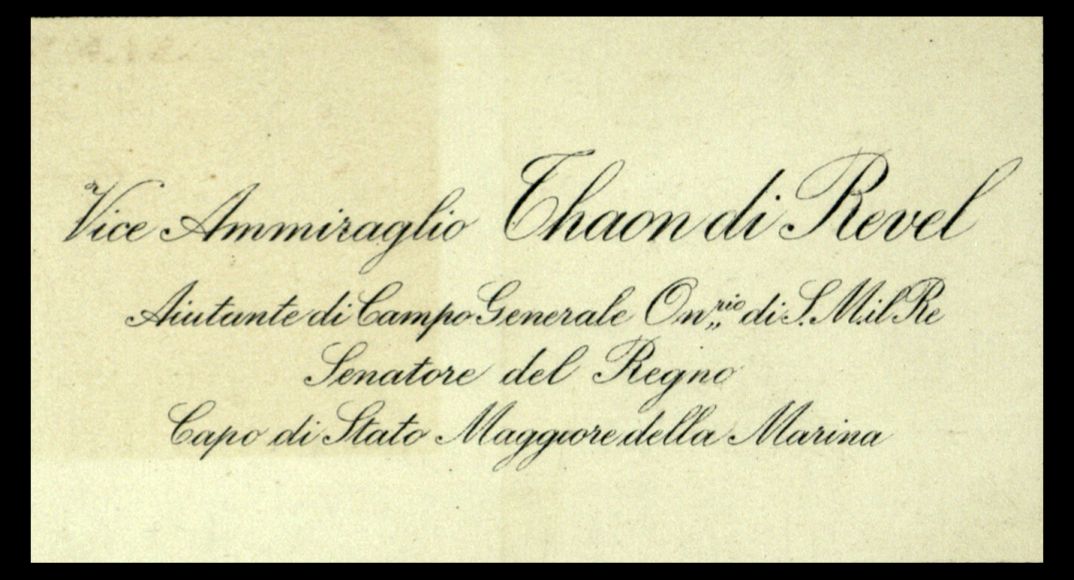 Vice Ammiraglio Thaon di Revel
Aiutante di Campo Generale On.rio di S. M. il Re
Senatore del Regno
Capo di Stato Maggiore della Marina